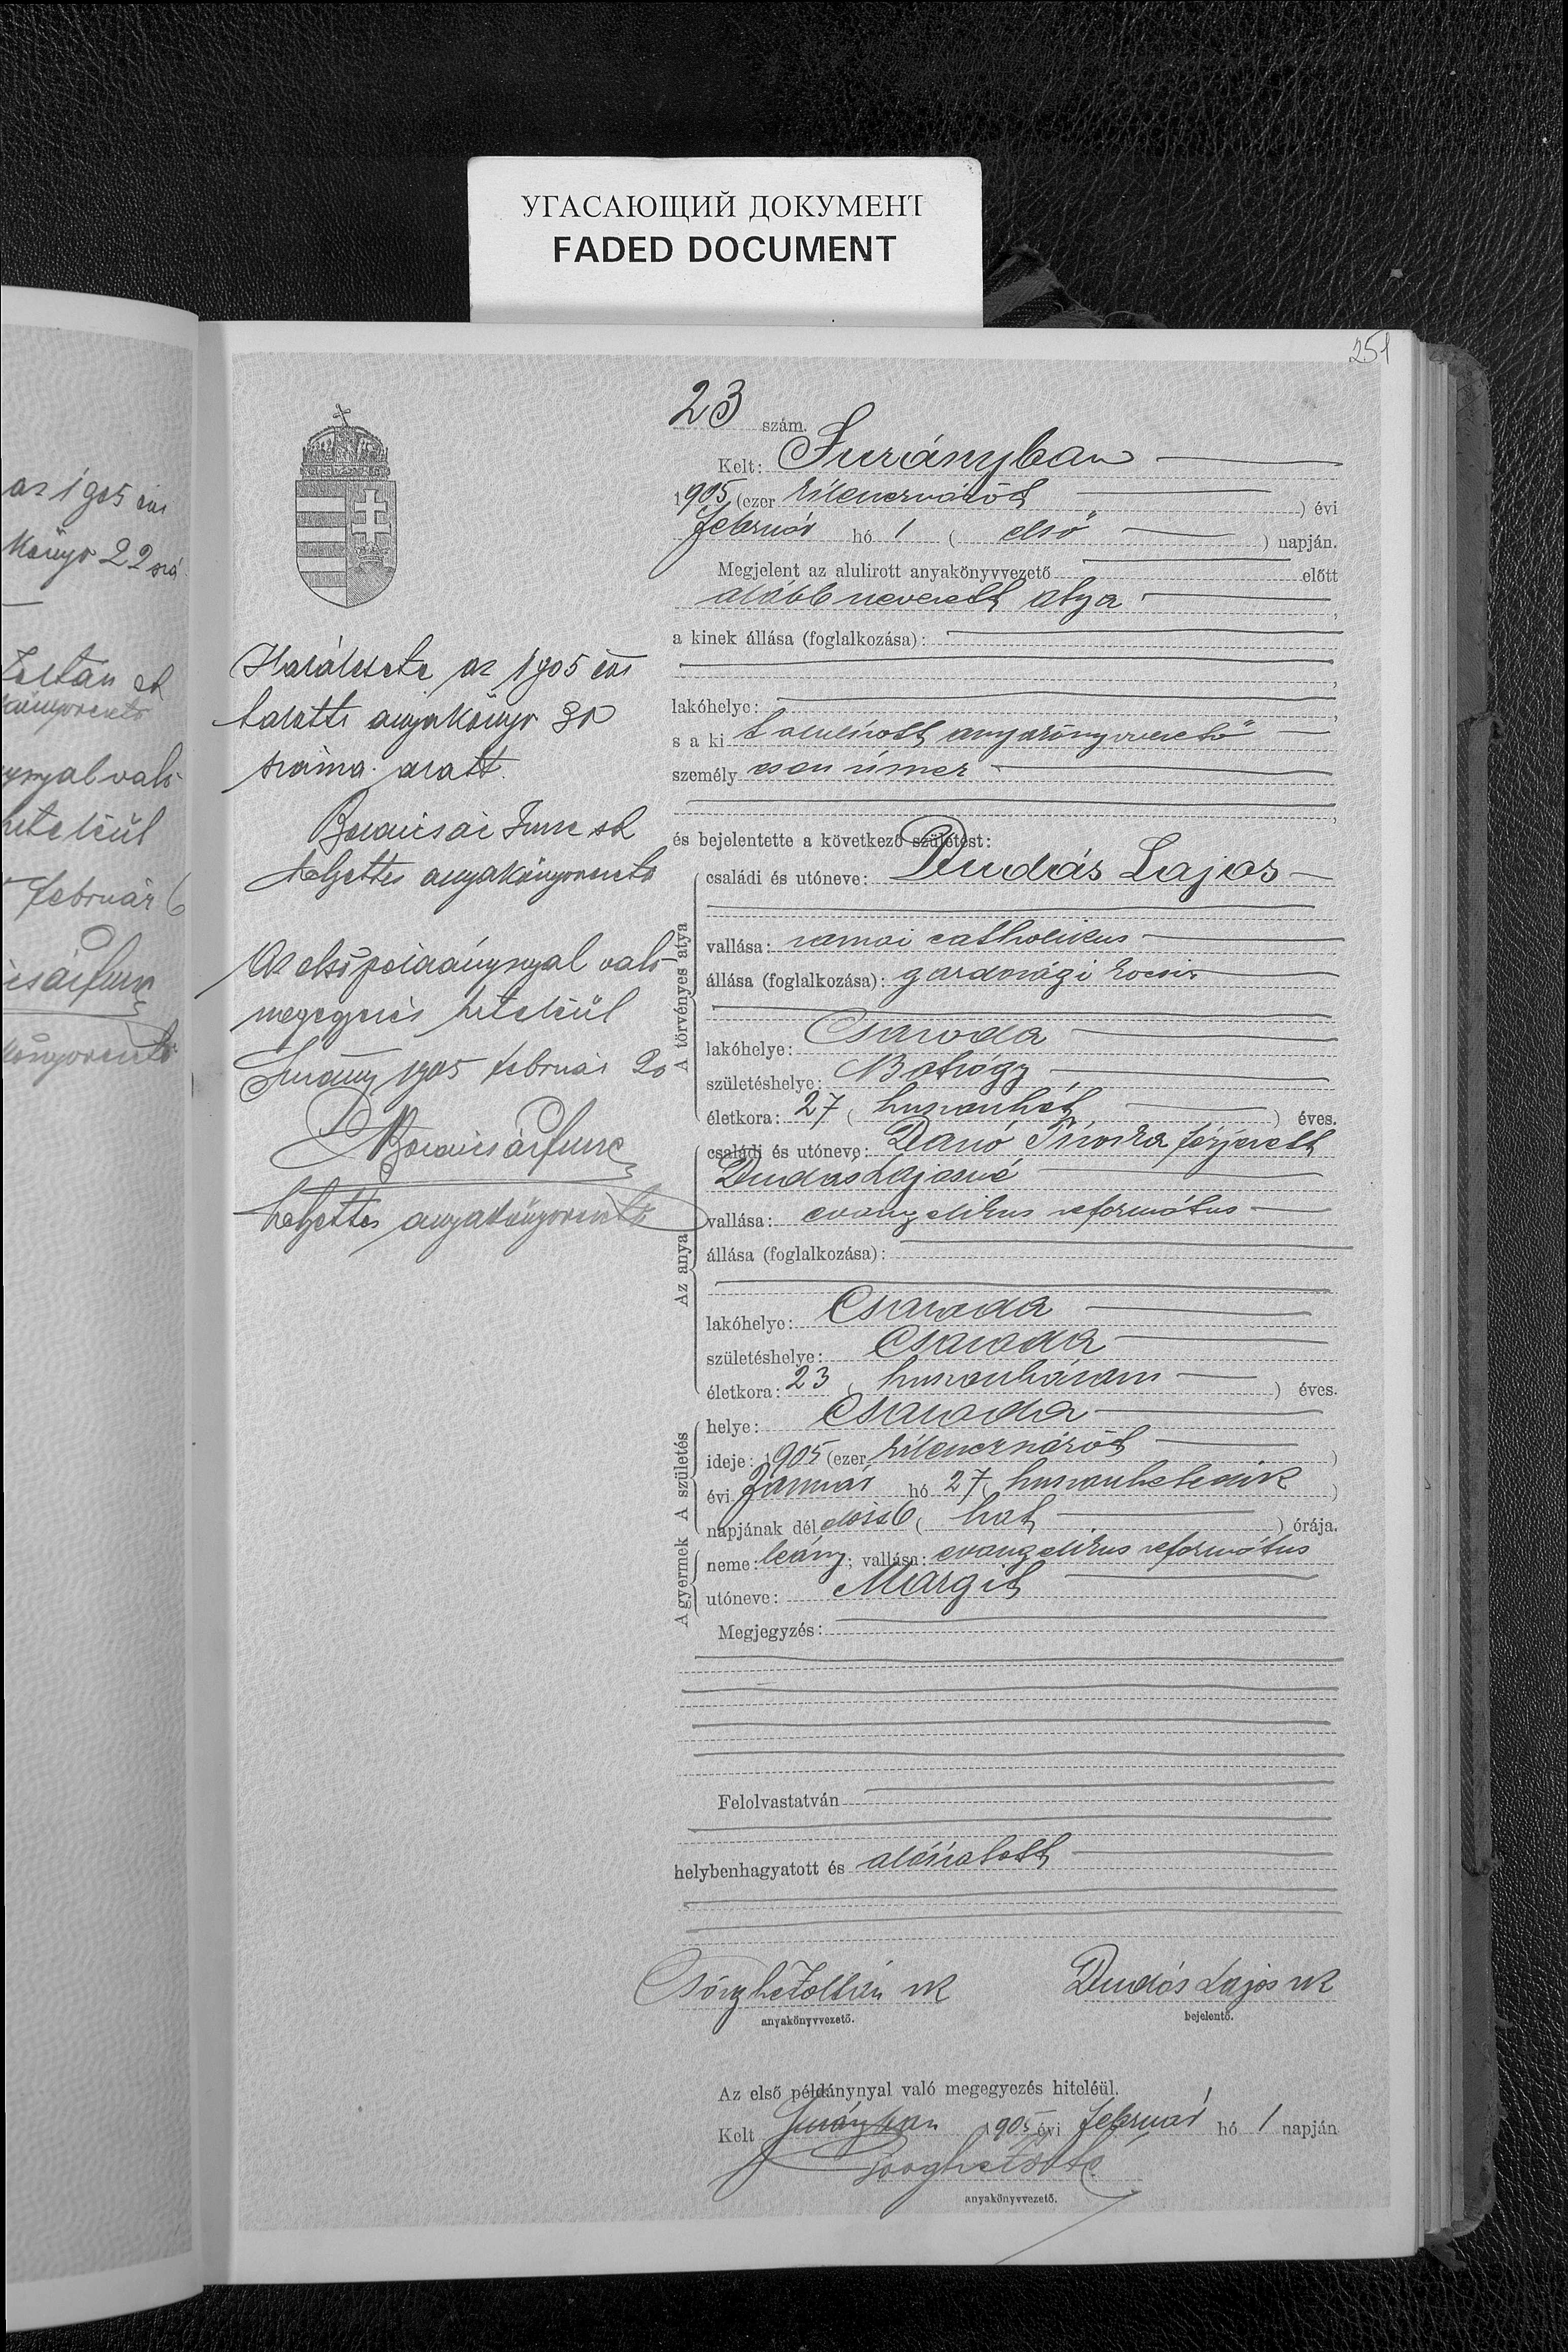 УГАСАЮЩИЙ ДОКУМЕНТ
FADED DOCUMENT
251
az 1905 évi
könyv 22 szá
Zoltán sk
könyvvezető
nynyal való
hiteléül
február 6
könyvvezető
Halálesete az 1905 évi
halotti anyakönyv 30
száma alatt.
sk
helyettes anyakönyvvezető
Az első példánynyal való
megegyezés hiteléül
Surány 1905 február 20
helyettes anyakönyvvezető
23 szám.
Kelt: Surányban
1905 (ezer kilenczszázöt ) évi
február hó 1 ( első ) napján.
Megjelent az alulirott anyakönyvvezető előtt
alább nevezett atya ,
a kinek állása (foglalkozása):
lakóhelye:
s a ki t alulírott anyakönyvvezető
személyesen ismer
és bejelentette a következő születést:
A törvényes atya
családi és utóneve: Dudás Lajos
vallása: római catholikus
állása (foglalkozása): gazdasági kocsis
lakóhelye: Csaroda
születéshelye: Botrágy
életkora: 27 ( huszonhét ) éves.
Az anya
családi és utóneve: Danó Piroska férjezett
Dudás Lajosné
vallása: evangelikus református
állása (foglalkozása):
lakóhelye: Csaroda
születéshelye: Csaroda
életkora: 23 ( huszonhárom ) éves.
A születés
helye: Csaroda
ideje: 1905 (ezer kilenczszázöt )
évi január hó 27 ( huszonhetedik )
napjának dél előtt 6 ( hat ) órája.
A gyermek
neme: leány; vallása: evangelikus református
utóneve: Margit
Megjegyzés:
Felolvastatván
helybenhagyatott és aláíratott
Zoltán sk
Dudás Lajos sk
anyakönyvvezető.
bejelentő.
Az első példánynyal való megegyezés hiteléül.
Kelt Surányban 1905 évi február hó 1 napján
anyakönyvvezető.